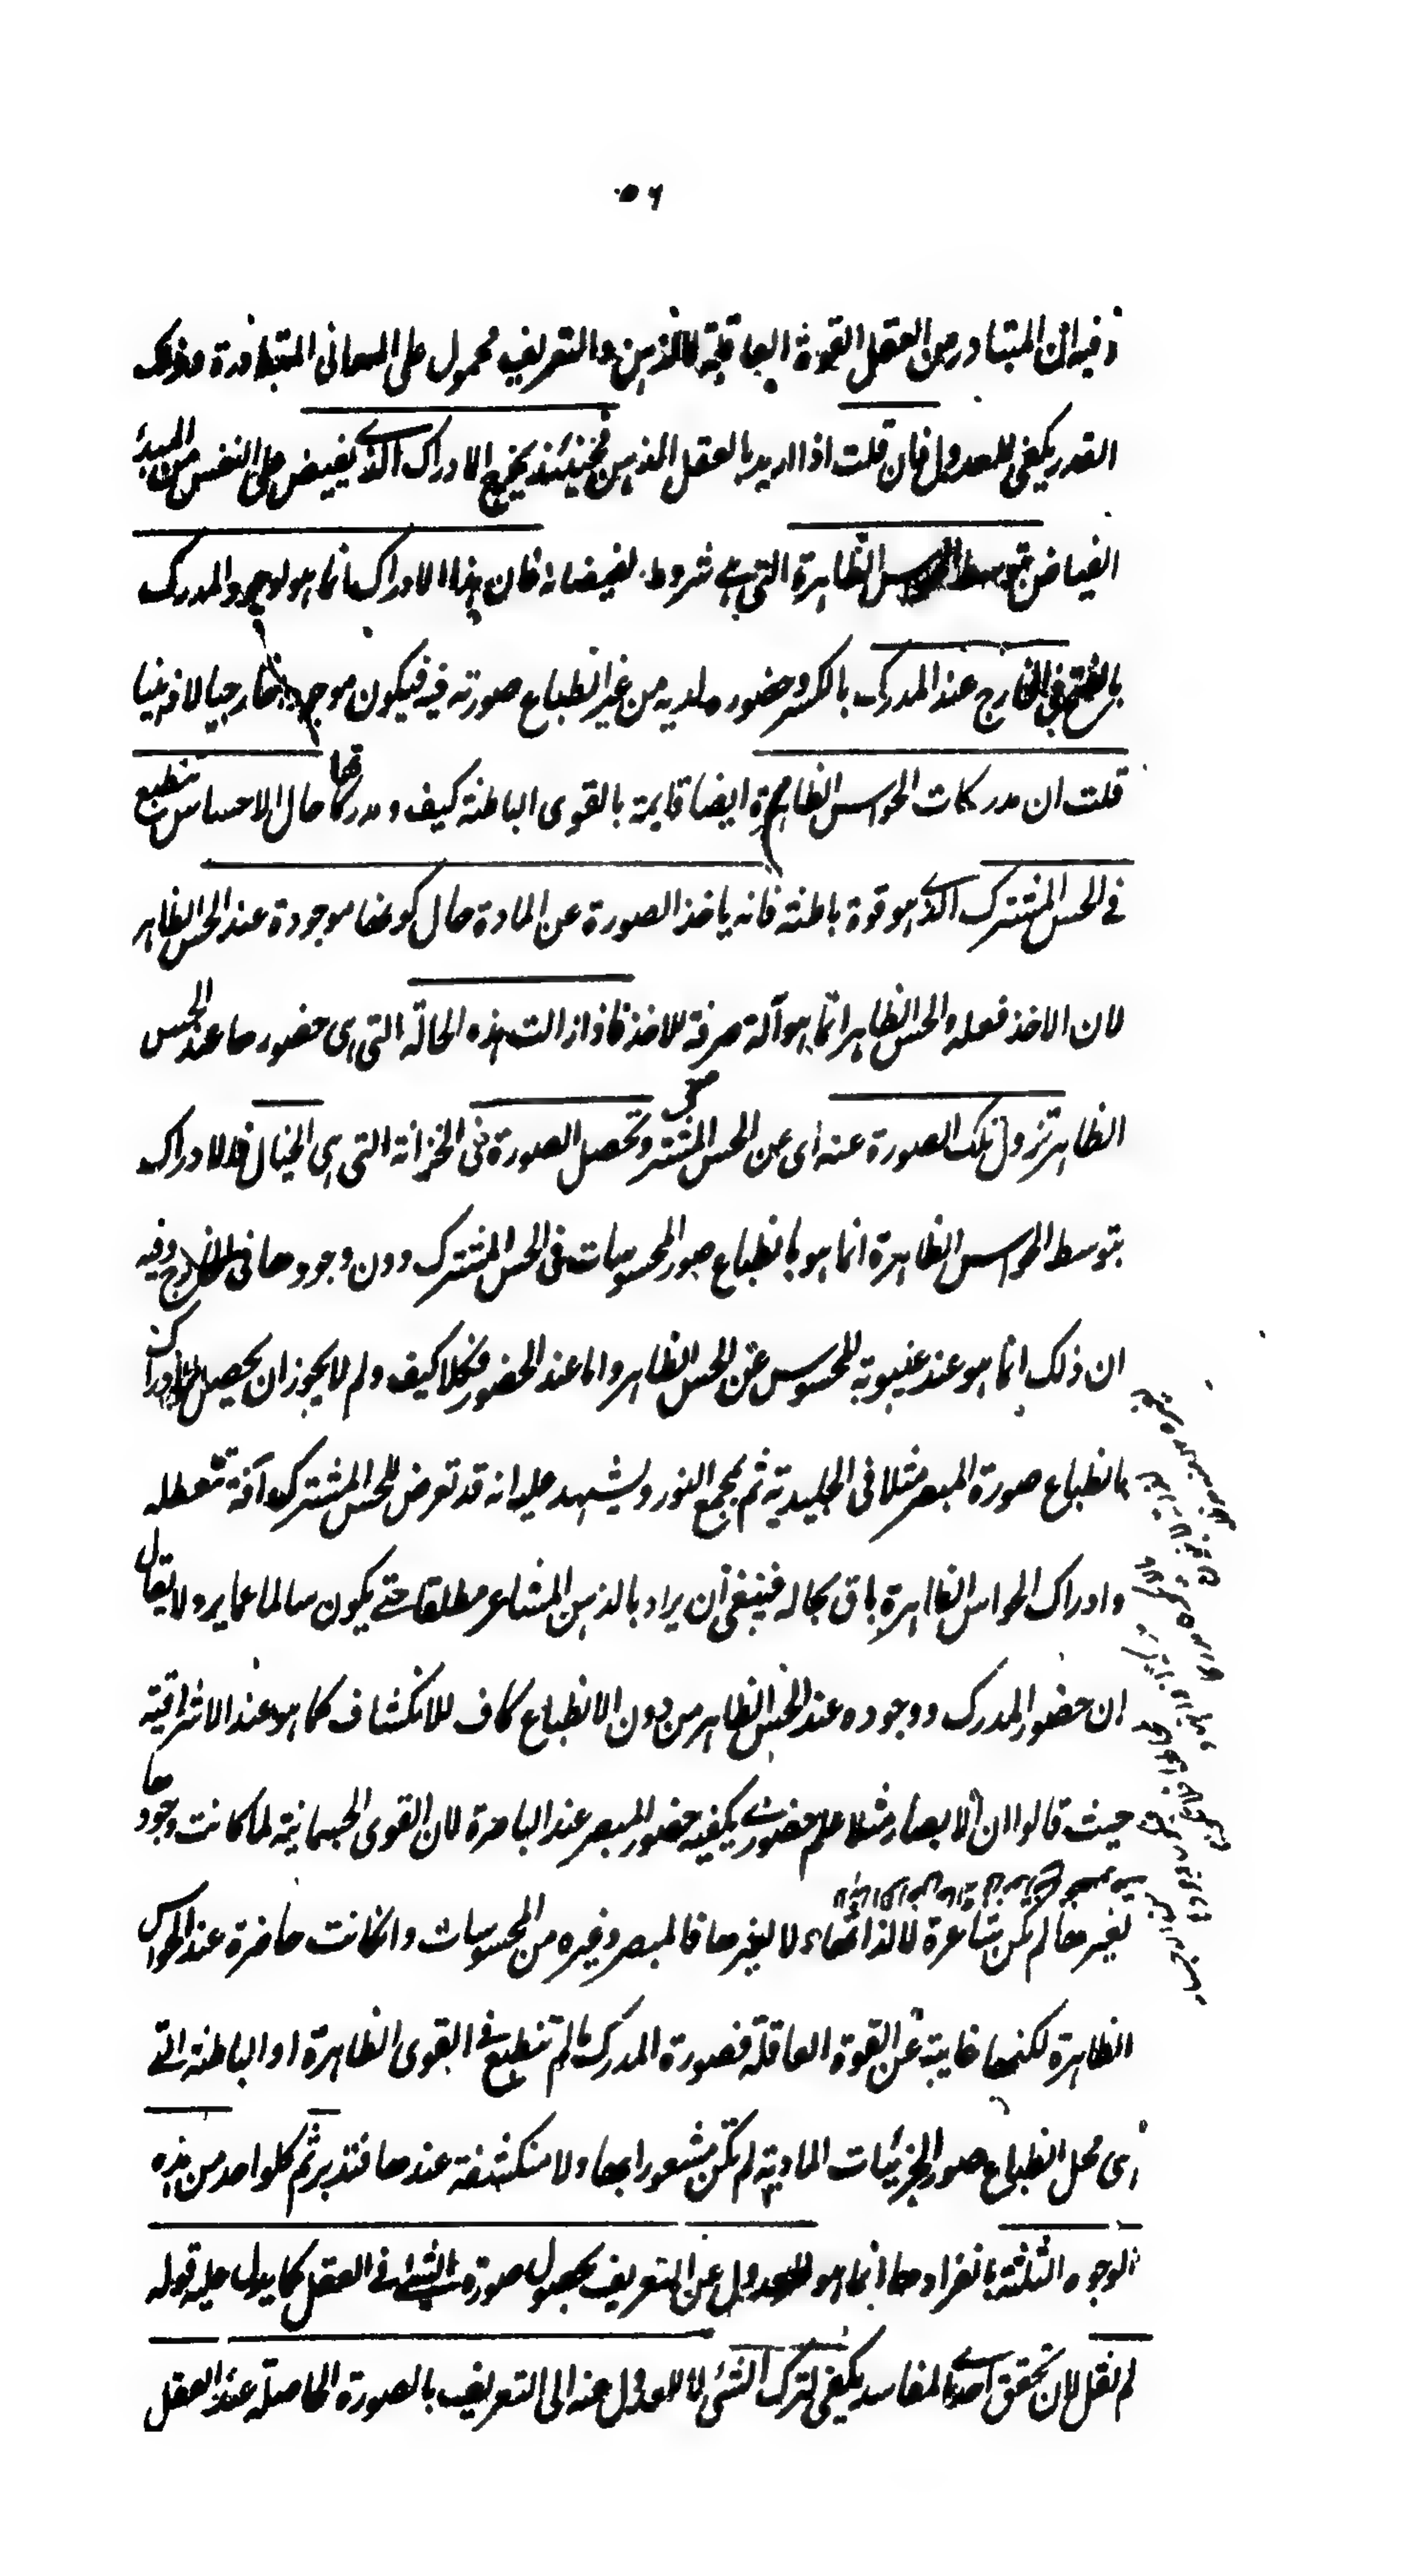 ٥٦
وفيه ان المتبادر من العقل القوة العاقلة لا الذهن والتعريف محمول على المعانى المتبادرة وذلك
القدر يكفى للعدول فان قلت اذا اريد بالعقل الذهن فحينئذ يخرج الادراك الذى يفيض على النفس من المبدئ
الفياض بتوسط الحواس الظاهرة التى هى شروط لفيضانه فان هذا الادراك انما هو لوجود المدرك
بالفتح فى الخارج عند المدرك بالكسر وحضوره لديه من غير انطباع صورته فيه فيكون موجودا خارجيا لا ذهنيا
قلت ان مدركات الحواس الظاهرة ايضا قايمة بالقوى الباطنة كيف ومدركاتها حال الاحساس تنطبع
فى الحس المشترك الذى هو قوة باطنة فانه ياخذ الصورة عن المادة حال كونها موجودة عند الحس الظاهر
لان الاخذ فعله والحس الظاهر انما هو آلة صرفة للاخذ فاذا زالت هذه الحالة التى هى حضورها عند الحس
الظاهر تزول تلك الصورة عنه اى عن الحس المشترك وتحصل الصورة فى الخزانة التى هى الخيال فالادراك
بتوسط الحواس الظاهرة انما هو بانطباع صور المحسوسات فى الحس المشترك دون وجودها فى الخارج وفيه
ان ذلك انما هو عند غيبوبة المحسوس عن الحس الظاهر واما عند الحضور فكلا كيف ولم لا يجوز ان يحصل الادراك
بانطباع صورة المبصر مثلا فى الجليدية ثم بمجمع النور ويشهد عليه انه قد تعرض للحس المشترك آفة تعطله
وادراك الحواس الظاهرة باق بحاله فينبغى ان يراد بالذهن المشاعر مطلقا حتى يكون سالما عما يرد ولا يقال
ان حضور المدرك ووجوده عند الحس الظاهر من دون الانطباع كاف للانكشاف كما هو عند الاشراقية
حيث قالوا ان الابصار مثلا علم حضورى يكفيه حضور المبصر عند الباصرة لان القوى الجسمانية لما كانت وجودها
لغيرها لم تكن شاعرة لا لذاتها ولا لغيرها فالمبصر وغيره من المحسوسات وان كانت حاضرة عند الحواس
الظاهرة لكنها غايبة عن القوة العاقلة فصورة المدرك ما لم تنطبع فى القوى الظاهرة او الباطنة التى
هى محل انطباع صور الجزئيات المادية لم تكن مشعورا بها ولا منكشفة عندها فتدبر ثم كل واحد من هذه
الوجوه الثلثة بانفرادها انما هو للعدول عن التعريف بحصول صورة الشئ فى العقل كما يدل عليه قوله
لم نقل لان تحقق احدى المفاسد يكفى لترك الشئ لا للعدول عنه الى التعريف بالصورة الحاصلة عند العقل